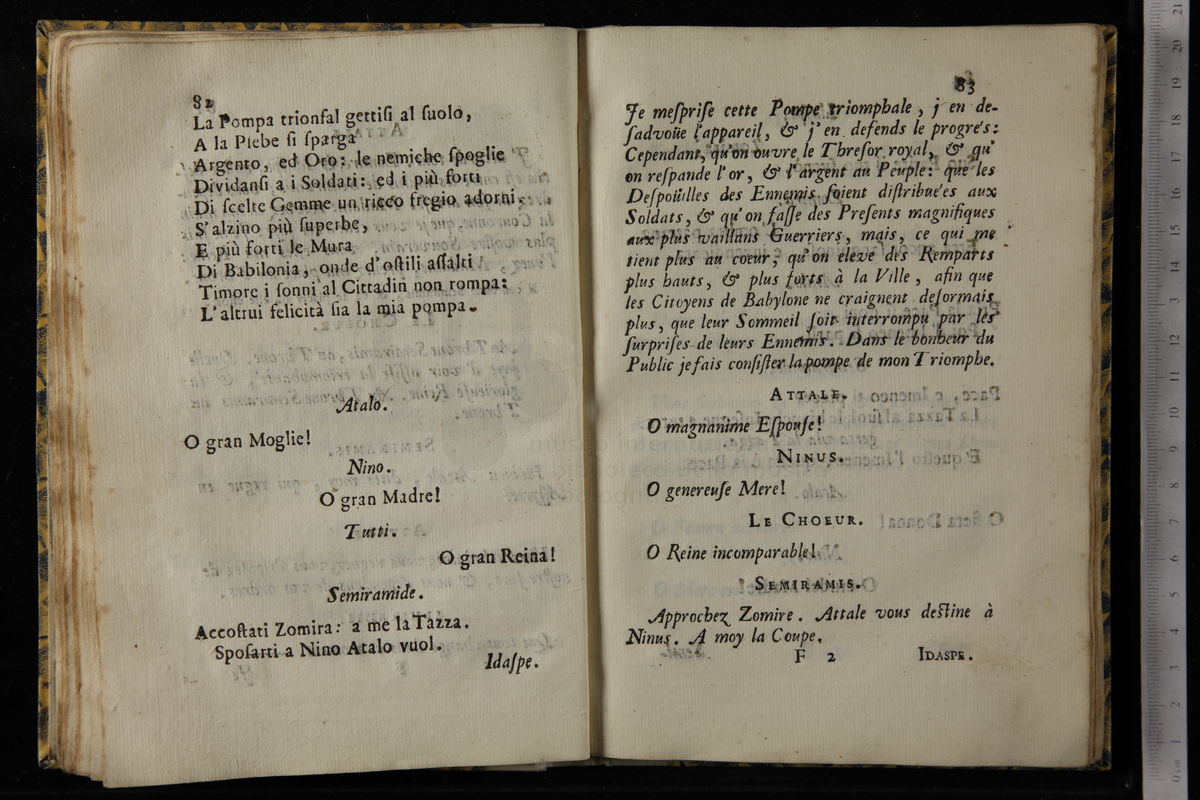 82
La Pompa trionfal gettisi al suolo,
A la Plebe si sparga
Argento, ed Oro: le nemiche spoglie
Dividansi a i Soldati: ed i più forti
Di scelte Gemme un ricco fregio adorni,
S'alzino più superbe,
E più forti le Mura
Di Babilonia, onde d'ostili assalti
Timore i sonni al Cittadin non rompa:
L'altrui felicità sia la mia pompa.
Atalo.
O gran Moglie!
Nino.
O gran Madre!
Tutti.
O gran Reina!
Semiramide.
Accostati Zomira: a me la Tazza.
Sposarti a Nino Atalo vuol.
Idaspe.
83
Je mesprise cette Pompe triomphale, j'en de-
sadvoüe l'appareil, & j'en defends le progrés:
Cependant, qu'on ouvre le Thresor royal, & qu'
on respande l'or, & l'argent au Peuple: que les
Despoüilles des Ennemis soient distribue'es aux
Soldats, & qu'on fasse des Presents magnifiques
aux plus vaillans Guerriers, mais, ce qui me
tient plus au coeur, qu'on eleve des Remparts
plus hauts, & plus forts à la Ville, afin que
les Citoyens de Babylone ne craignent desormais
plus, que leur Sommeil soit interrompu par les
surprises de leurs Ennemis. Dans le bonheur du
Public je fais consister la pompe de mon Triomphe.
ATTALE.
O magnanime Espouse!
NINUS.
O genereuse Mere!
LE CHOEUR.
O Reine incomparable!
SEMIRAMIS.
Approchez Zomire. Attale vous destine à
Ninus. A moy la Coupe.
F 2 IDASPE.